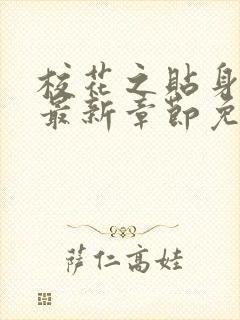 校花之贴身
最新章节免
萨仁高娃